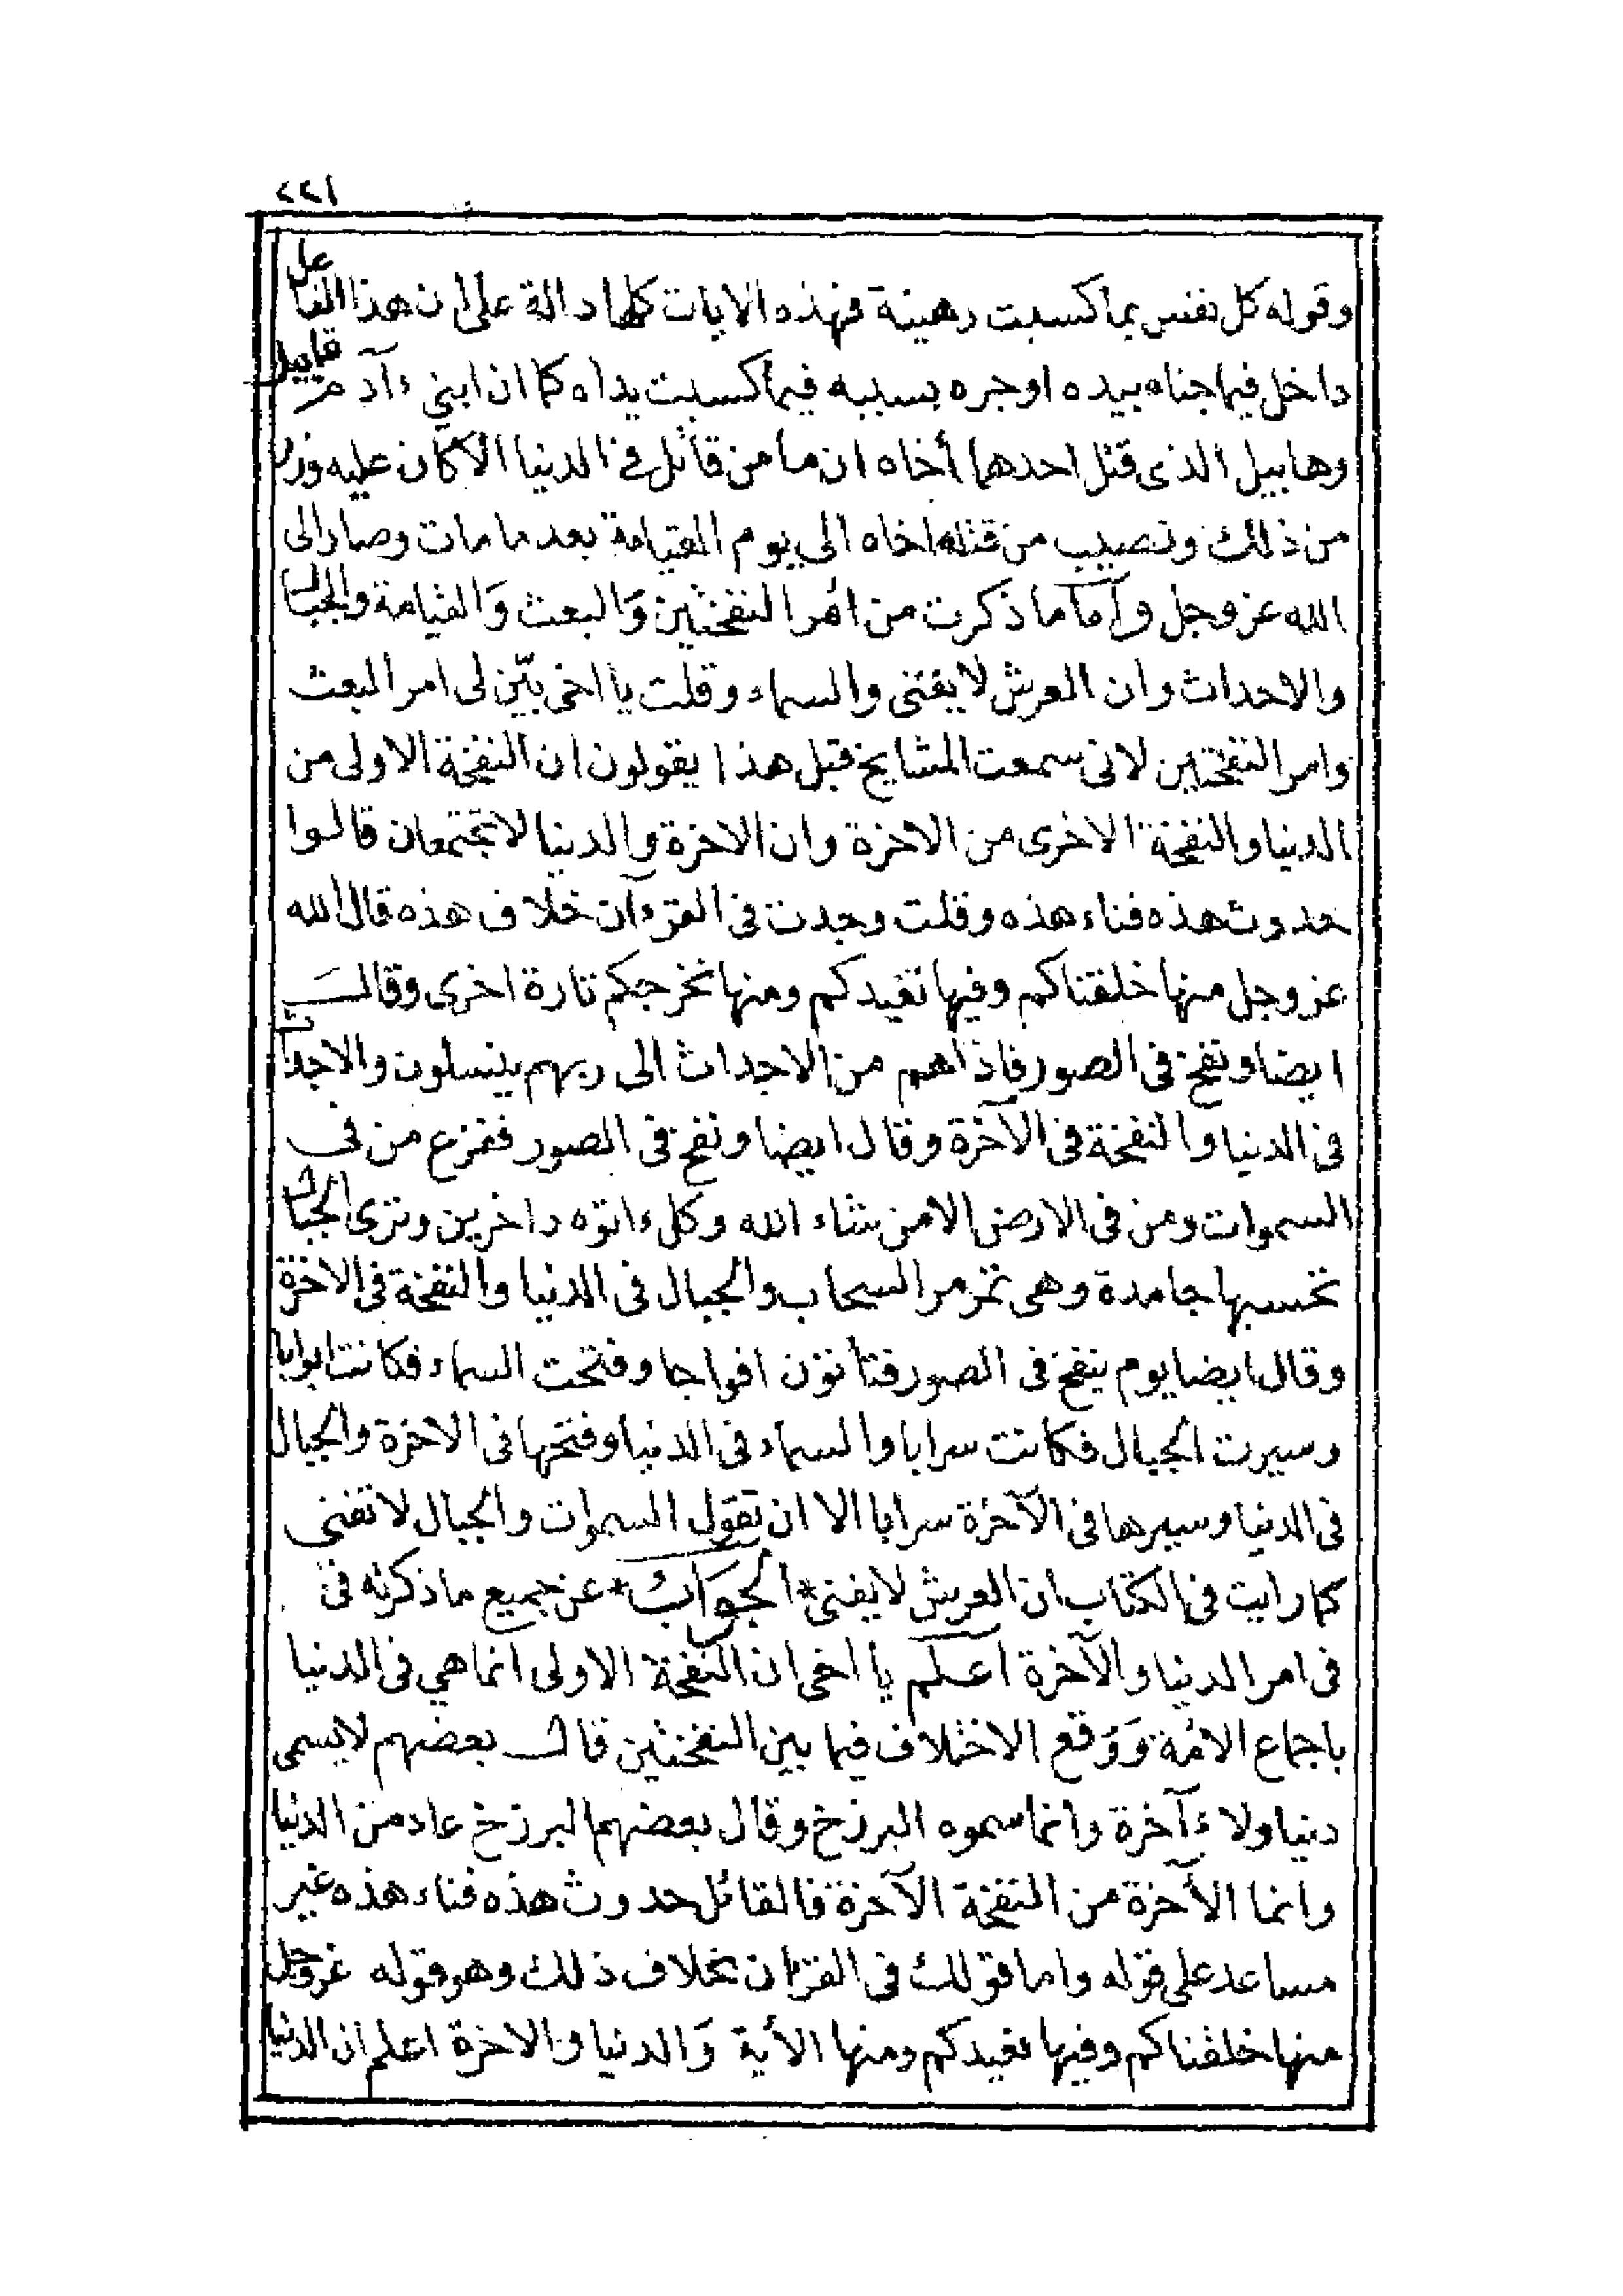 ٢٢١
وقوله كل نفس بما كسبت رهينة فهذه الايات كلها دالة على ان هذا الفاعل
داخل فيما جناه بيده او جره بسببه فيما كسبت يداه كما ان ابني ءآدم قابيل
وهابيل الذى قتل احدهما أخاه ان ما من قاتل في الدنيا الا كان عليه وزر
من ذلك ونصيب من قتله اخاه الى يوم القيامة بعد ما مات وصار الى
الله عز وجل وأما ما ذكرت من أمر النفختين وَالبعث وَالقيامة والجبال
والاحداث وان العرش لا يفنى والسماء وقلت يا اخى بيّن لى امر البعث
وامر النفختين لانى سمعت المشايخ قبل هذا يقولون ان النفخة الاولى من
الدنيا والنفخة الاخرى من الاخرة وان الاخرة والدنيا لا تجتمعان قالوا
حدوث هذه فناء هذه وقلت وجدت فى القرءآن خلاف هذه قال الله
عز وجل منها خلقناكم وفيها نعيدكم ومنها نخرجكم تارة اخرى وقال
ايضا ونفخ فى الصور فاذا هم من الاجداث الى ربهم ينسلون والاجداث
فى الدنيا والنفخة فى الآخرة وقال ايضا ونفخ فى الصور ففزع من فى
السموات ومن فى الارض الا من شاء الله وكل ءاتوه داخرين وترى الجبال
تحسبها جامدة وهى تمر مر السحاب والجبال فى الدنيا والنفخة فى الاخرة
وقال ايضا يوم ينفخ فى الصور فتأتون افواجا وفتحت السماء فكانت ابوابا
وسيرت الجبال فكانت سرابا والسماء فى الدنيا وفتحها فى الاخرة والجبال
فى الدنيا وسيرها فى الآخرة سرابا الا ان تقول السموات والجبال لا تفنى
كما رايت فى الكتاب ان العرش لا يفنى * الجوَابُ * عن جميع ما ذكرته فى
فى امر الدنيا والآخرة اعلم يا اخى ان النفخة الاولى انما هي فى الدنيا
باجماع الأمة وَوَقع الاختلاف فيما بين النفختين قال بعضهم لا يسمى
دنيا ولا ءآخرة وانما سموه البرزخ وقال بعضهم البرزخ عاد من الدنيا
وانما الآخرة من النفخة الآخرة فالقائل حدوث هذه فناء هذه غير
مساعد على قوله واما قولك فى القرءان بخلاف ذلك وهو قوله عز وجل
منها خلقناكم وفيها نعيدكم ومنها الأية وَالدنيا والاخرة اعلم ان الدنيا